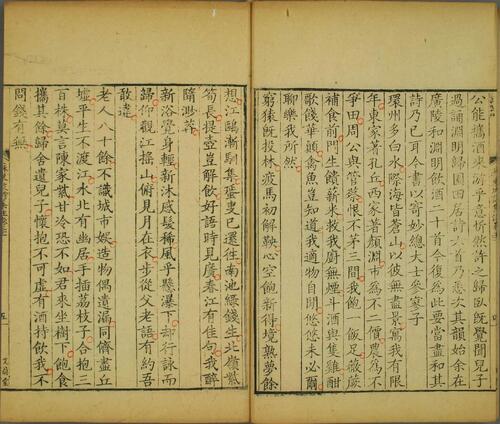 公能攜酒來游乎意忻然許之歸臥既覺聞兒子
過誦淵明歸園田居詩六首乃悉次其韻始余在
廣陵和淵明飲酒二十首今復為此要當盡和其
詩乃已耳今書以寄妙總大士參寥子
環州多白水際海皆蒼山以彼無盡景寓我有限
年東家著孔丘西家著顏淵市為不二價農為不
爭田周公與管蔡恨不茅三間我飽一飯足薇蕨
補食前門生饋薪米救我廚無煙斗酒與隻雞酣
歌餞華顛禽魚豈知道我適物自閒悠悠未必爾
聊樂我所然
窮猿既投林疲馬初解鞅心空飽新得境熟夢餘
想江鷗漸馴集蜑叟已還往南池綠錢生北嶺紫
筍長提壺豈解飲好語時見廣春江有佳句我醉
墮渺莽
新浴覺身輕新沐感髮稀風乎懸瀑下却行詠而
歸仰觀江搖山俯見月在衣步從父老語有約吾
敢違
老人八十餘不識城市娛造物偶遺漏同儕盡丘
墟平生不渡江水北有幽居手插荔枝子合抱三
百株莫言陳家紫甘冷恐不如君來坐樹下飽食
攜其餘歸舍遺兒子懷抱不可虛有酒持飲我不
問錢有無
五
文蔚堂